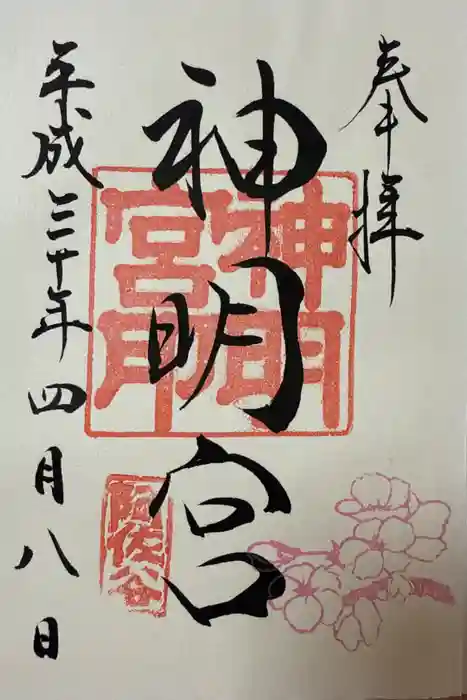 奉拝
神明宮
神明
宮印
阿佐谷
平成三十年四月八日